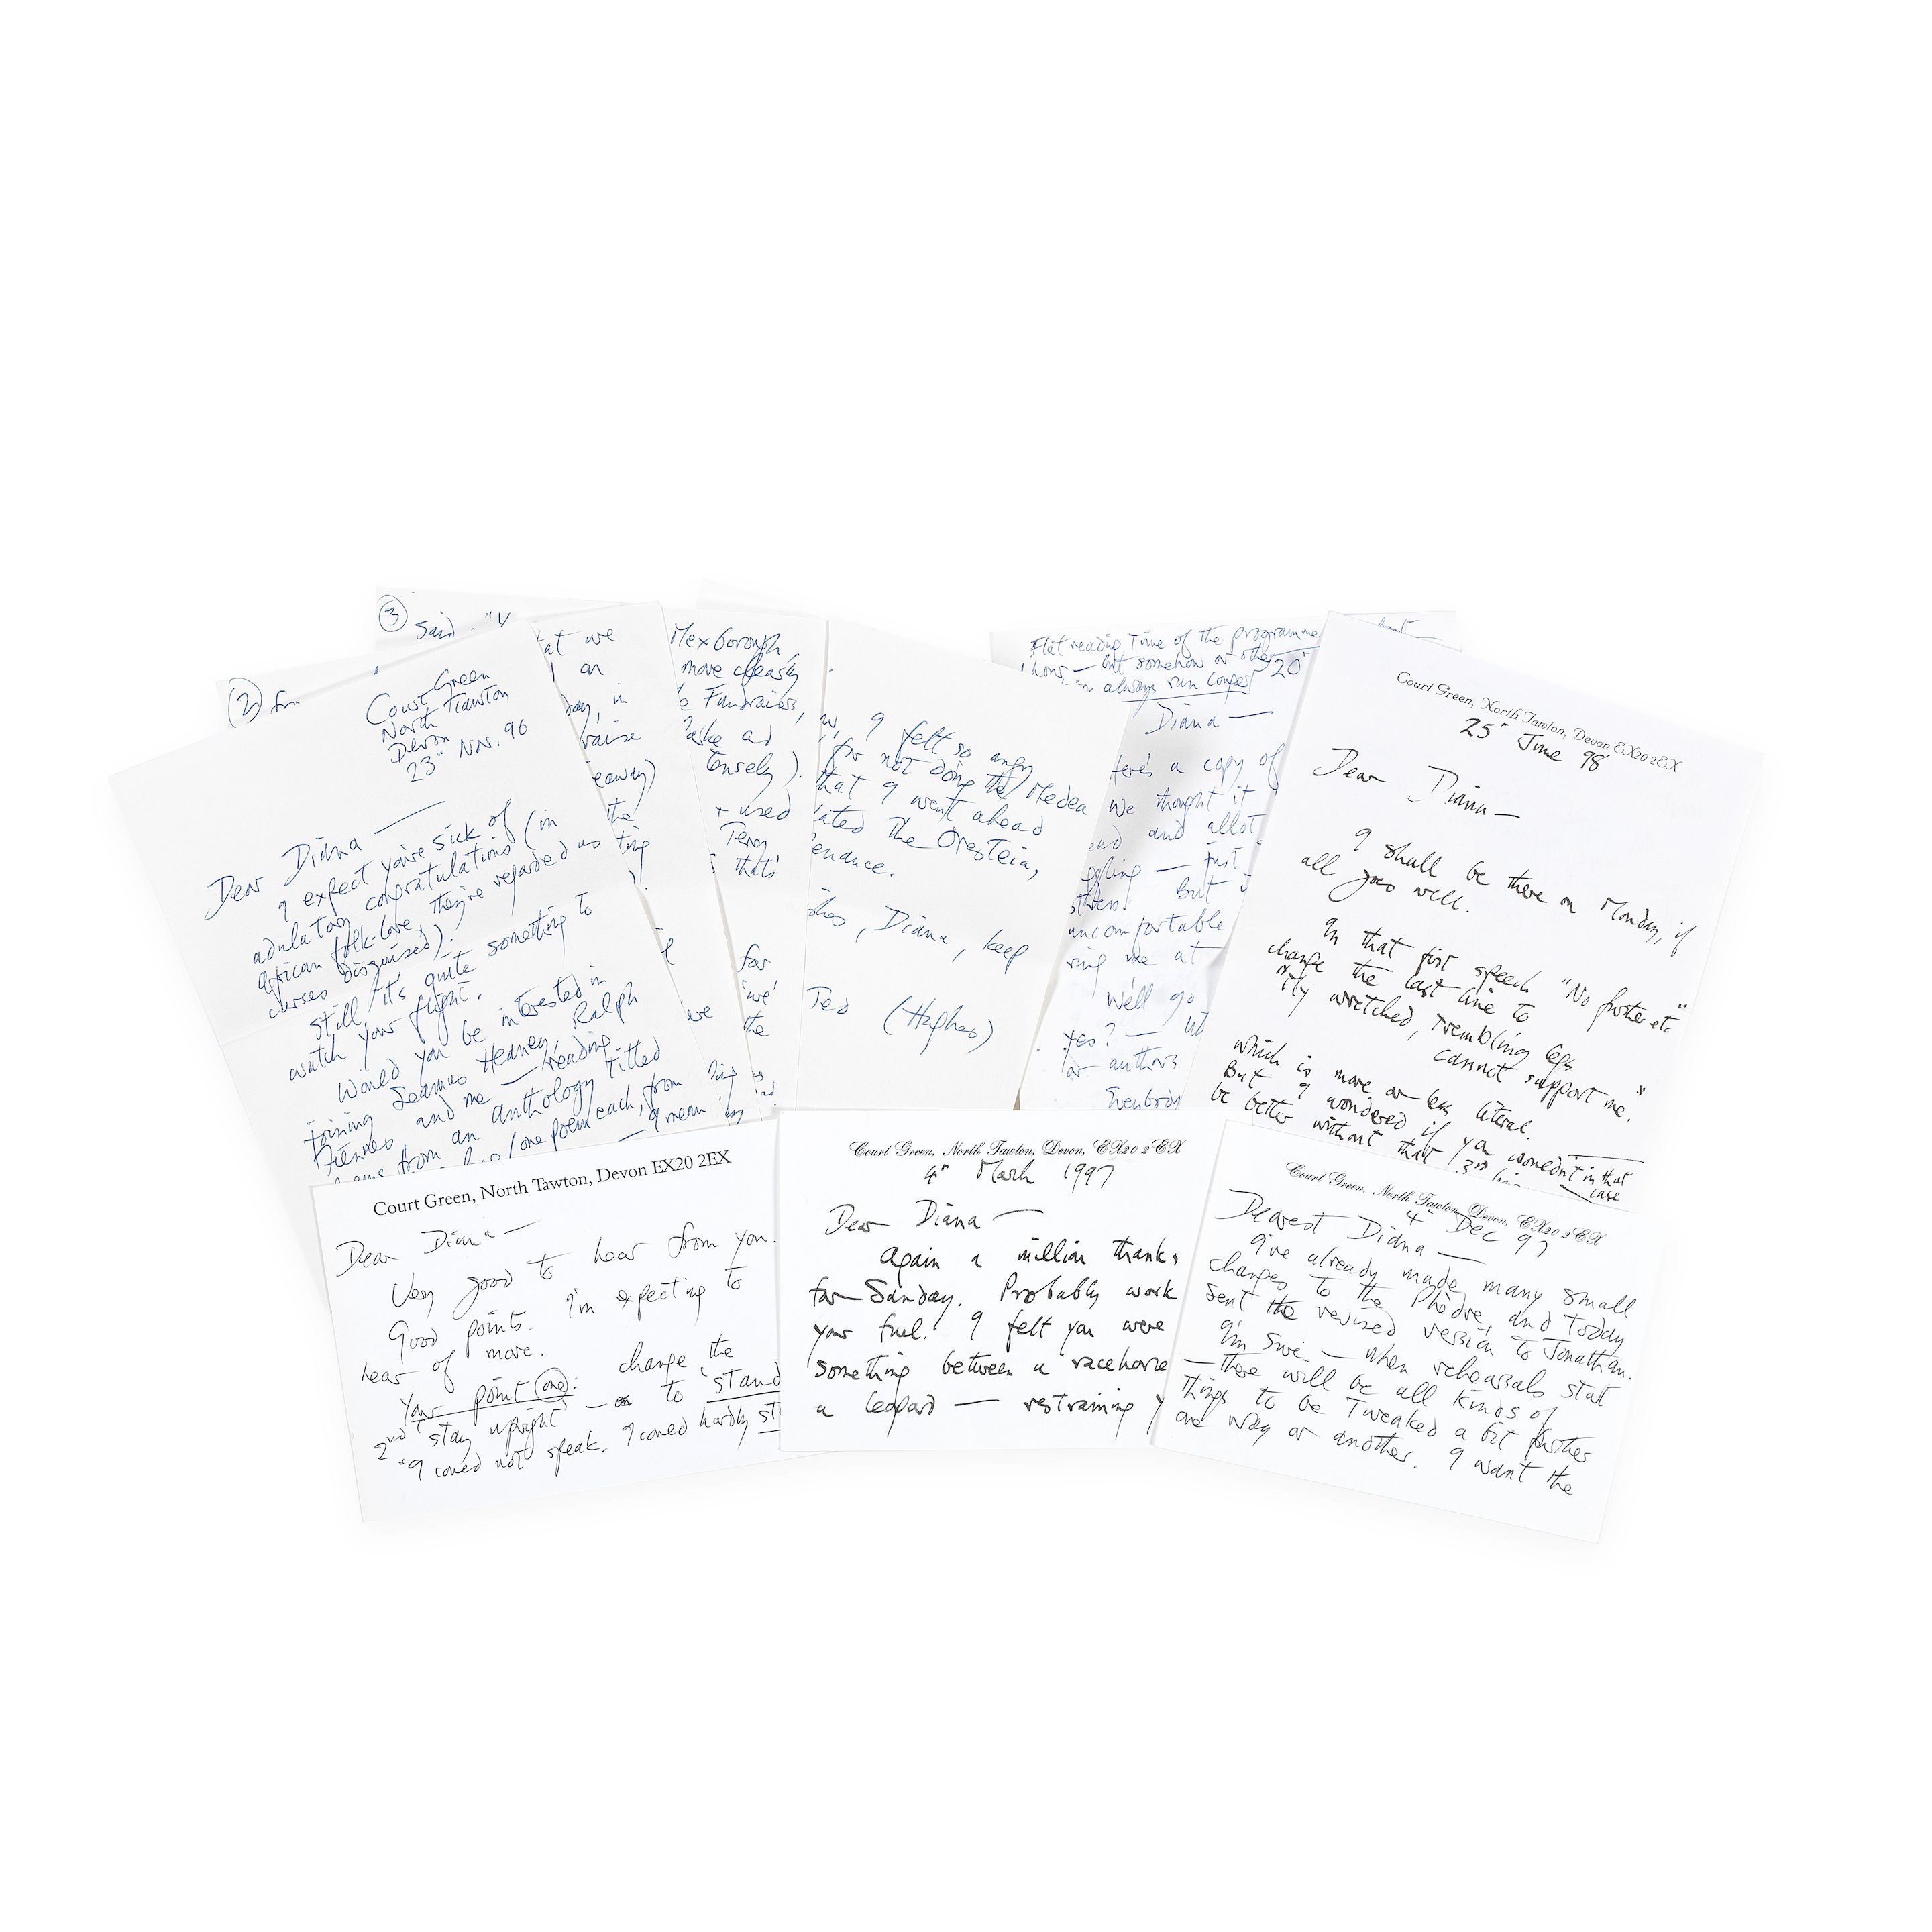 (3) Said. "V
(2)
Court Green
North Tawton
Devon
23rd Nov. 96
Dear Diana —
I expect you're sick of
adulatory congratulations (in
African folk-lore, they're regarded as
curses disguised).
Still, it's quite something to
watch your flight.
Would you be interested in
joining Seamus Heaney, Ralph
Fiennes, and me — reading
an anthology titled
from /one poem each, from
— I mean
at we
an
in
raise
eaway)
the
ting
).
we
Mexborough,
move clearly
e Fundraisers,
ad
tensely).
+ used
Terry
that's
for
'we'
the
I felt so angry
for not doing the Medea
that I went ahead
lated the Oresteia,
enance.
shes, Diana, keep
Ted (Hughes)
Flat reading time of the programme
hour — but somehow or other 20"
always run longer
Diana —
Here's a copy of
We thought it
and allot
ggling — just
stress. But i
uncomfortable
ring me at
We'll go
yes? —
or authors
Everybody
Court Green, North Tawton, Devon EX20 2EX
25th June 98
Dear Diana —
I shall be there on Monday, if
all goes well.
In that first speech "No further etc"
change the last line to
"My wretched, trembling legs
cannot support me."
which is more or less literal.
But I wondered if you wouldn't in that
be better without that 3rd case
Court Green, North Tawton, Devon EX20 2EX
Dear Diana —
Very good to hear from you.
Good points. I'm expecting to
hear of more.
Your point (one): change the
2nd "stay upright" — to 'stand
"I could not speak. I could hardly st
Court Green, North Tawton, Devon, EX20 2EX
4th March 1997
Dear Diana —
Again a million thanks
for Sunday. Probably work
your fuel. I felt you were
something between a racehorse
a leopard — restraining y
Court Green, North Tawton, Devon, EX20 2EX
4th Dec 97
Dearest Diana —
I've already made many small
changes to the Phèdre, and today
sent the revised version to Jonathan.
I'm sure — when rehearsals start
— there will be all kinds of
things to be tweaked a bit further
one way or another. I want the